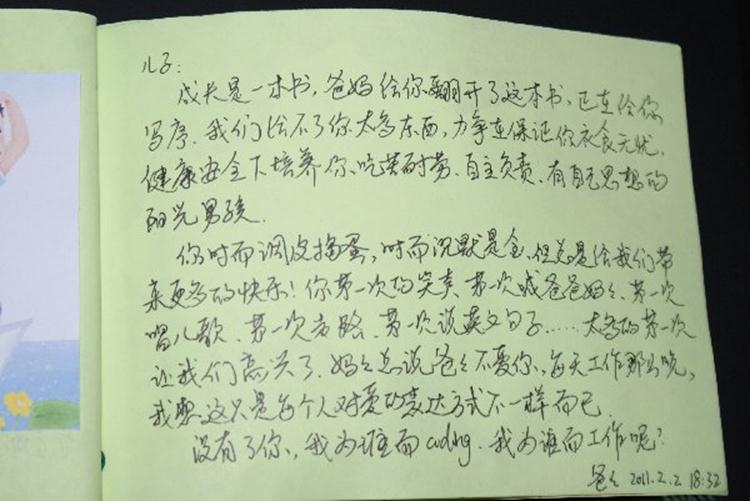 儿子：
成长是一本书，爸妈给你翻开了这本书，正在给你
写序。我们给不了你太多东西，力争在保证你衣食无忧、
健康安全下培养你、吃苦耐劳、自主负责、有自己思想的
阳光男孩。
你时而调皮捣蛋，时而沉默是金，但总是给我们带
来更多的快乐！你第一次的笑声、第一次喊爸爸妈妈、第一次
唱儿歌、第一次走路、第一次说英文句子……太多的第一次
让我们高兴了。妈妈总说爸爸不爱你，每天工作那么晚，
我想这只是每个人对爱的表达方式不一样而已。
没有了你，我为谁而coding，我为谁而工作呢？
爸爸 2011.2.2 18:32